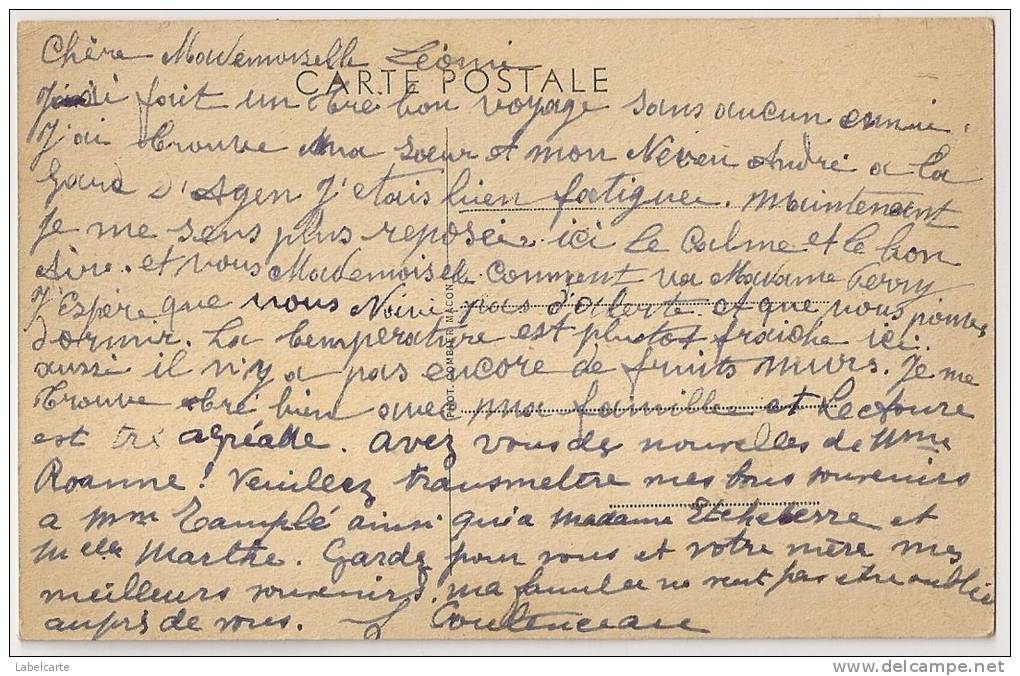 Chère Mademoiselle Léonie
CARTE POSTALE
J'ai fait un tré bon voyage sans aucun ennui.
J'ai trouve ma sœur et mon Neveu André a la
Gare D'Agen J'etais bien fatiguee. Maintenant
Je me sens plus reposée ici le Calme et le bon
Aire. et vous Mademoiselle Comment va Madame Ferry
J'Espère que vous N'aviez pas d'alerte. et que vous pouvez
dormir. La temperature est plutot fraiche ici.
aussi il n'y a pas encore de fruits murs. Je me
trouve tré bien avec ma famille et Lectoure
est tré agréable. avez vous des nouvelles de Mme
Roanne! Veuillez transmettre mes bons souvenirs
a Mme Templé ainsi qu'a Madame Etcheberre et
Melle Marthe. Gardez pour vous et votre mère mes
meilleurs souvenirs. ma famille ne veut pas etre oublié
auprs de vous.
PHOT. COMBIER MACON
Labelcarte
www.delcampe.net